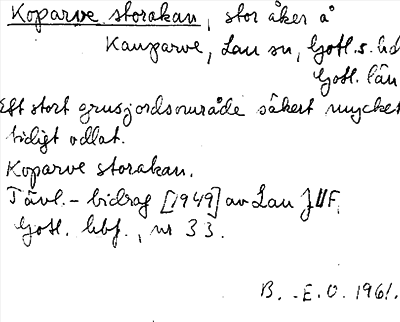 Koparve storakan, stor åker å
Kauparve, Lau sn, Gotl. s. hd
Gotl. län
Ett stort grusjordsområde säkert mycket
tidigt odlat.
Koparve storakan.
Tävl.- bidrag [1949] av Lau JUF,
Gotl. hbf., nr 33.
B. E. O. 1961.